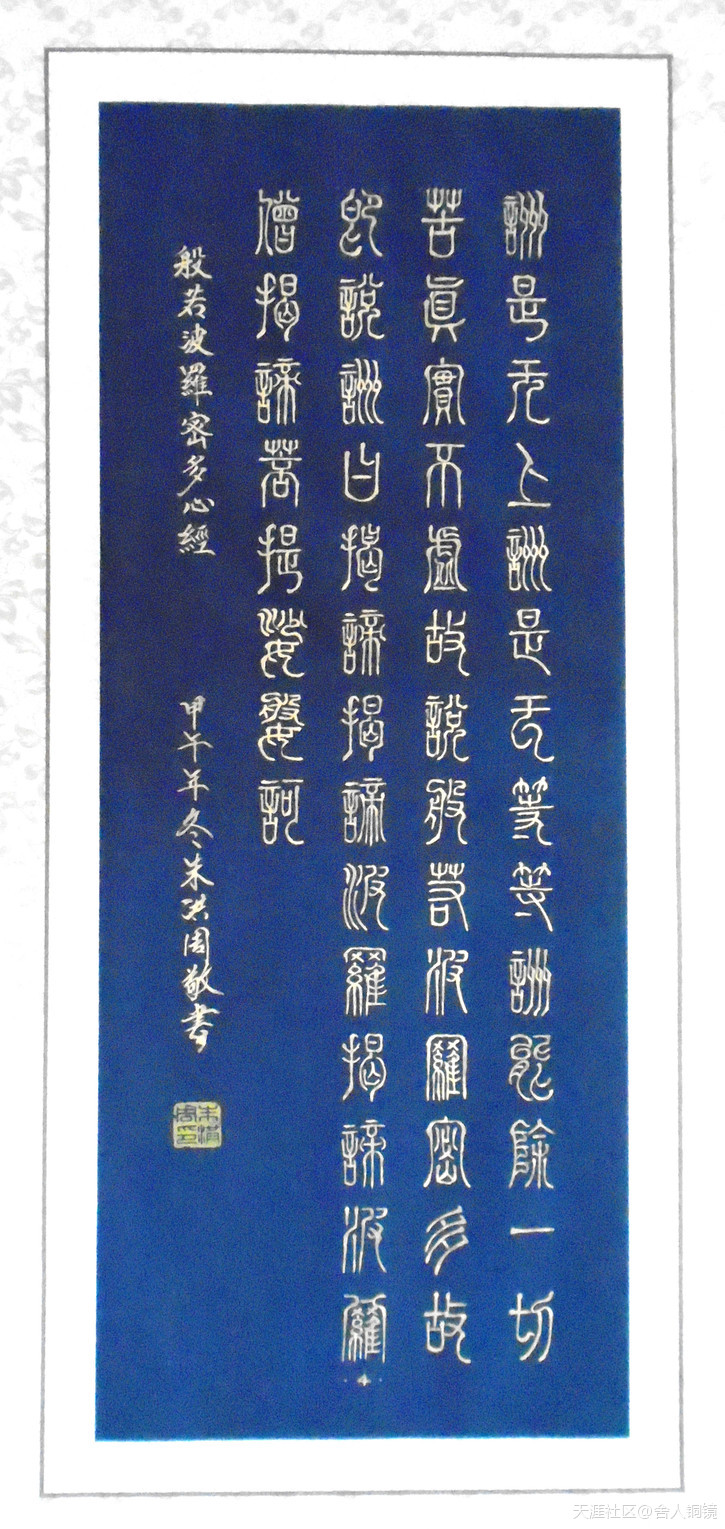 詶是无上詶是无等等詶能除一切
苦眞實不虛故說般若波羅密多故
即說詶曰揭諦揭諦波羅揭諦波羅
僧揭諦菩提娑婆訶
般若波羅密多心經 甲午年冬朱洪周敬書
朱洪周印
·4·
天涯社区@舍人铜镜